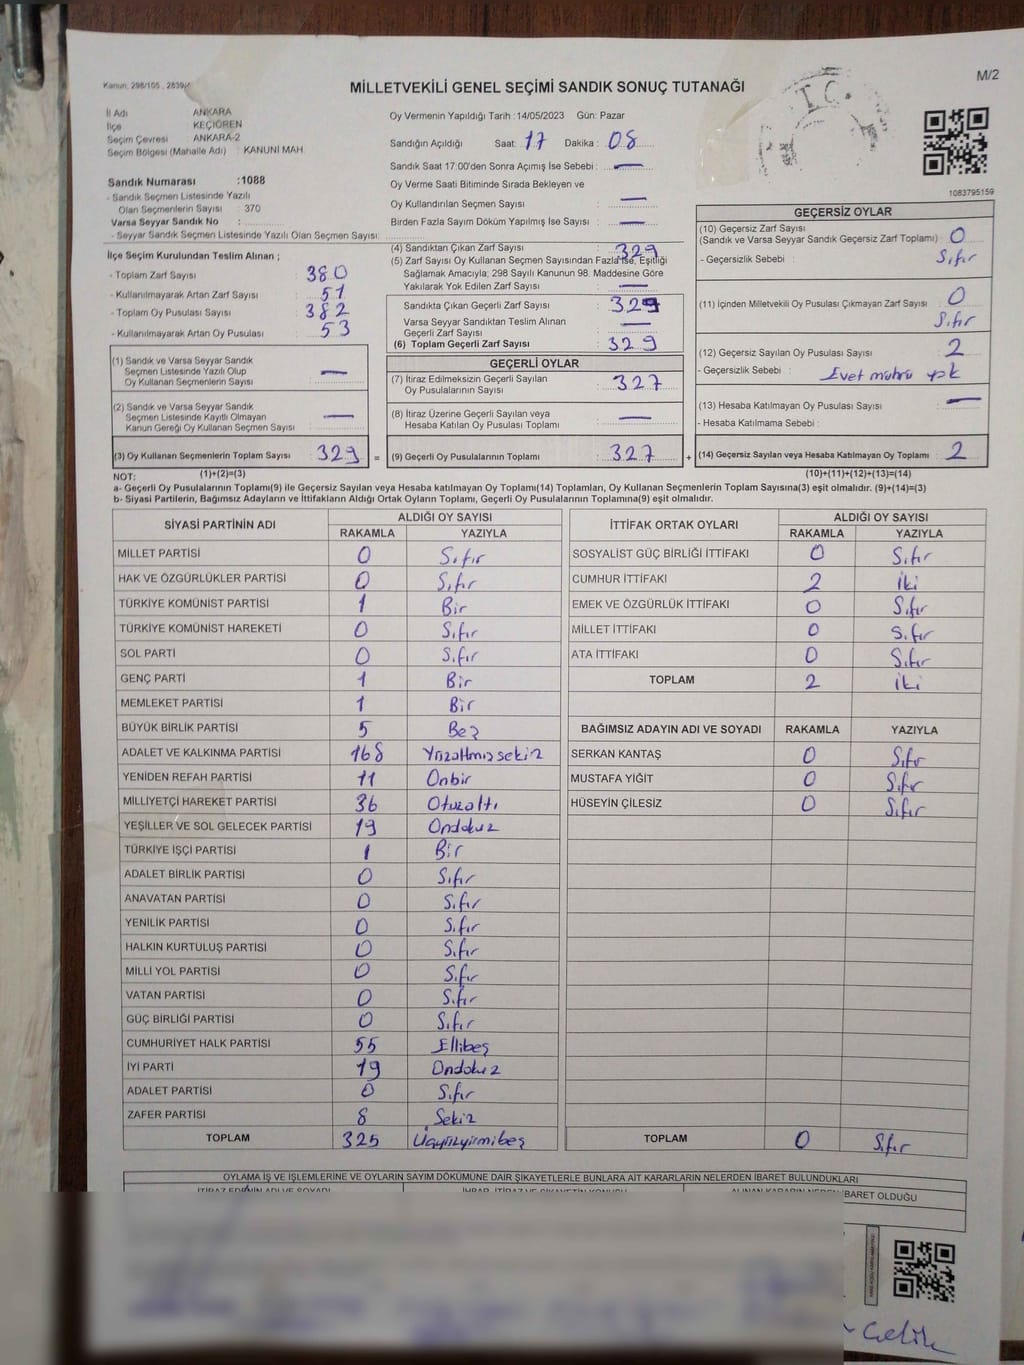 M/2
Kanun: 298/105 , 2839/
MİLLETVEKİLİ GENEL SEÇİMİ SANDIK SONUÇ TUTANAĞI
T.C.
İl Adı ANKARA
İlçe KEÇİÖREN
Seçim Çevresi ANKARA-2
Seçim Bölgesi (Mahalle Adı) : KANUNİ MAH.
Sandık Numarası :1088
- Sandık Seçmen Listesinde Yazılı
Olan Seçmenlerin Sayısı : 370
Varsa Seyyar Sandık No :
- Seyyar Sandık Seçmen Listesinde Yazılı Olan Seçmen Sayısı:
İlçe Seçim Kurulundan Teslim Alınan ;
- Toplam Zarf Sayısı : 380
- Kullanılmayarak Artan Zarf Sayısı : 51
- Toplam Oy Pusulası Sayısı : 382
- Kullanılmayarak Artan Oy Pusulası : 53
(1) Sandık ve Varsa Seyyar Sandık
Seçmen Listesinde Yazılı Olup
Oy Kullanan Seçmenlerin Sayısı : —
(2) Sandık ve Varsa Seyyar Sandık
Seçmen Listesinde Kayıtlı Olmayan
Kanun Gereği Oy Kullanan Seçmen Sayısı : —
(3) Oy Kullanan Seçmenlerin Toplam Sayısı : 329 =
Oy Vermenin Yapıldığı Tarih : 14/05/2023 Gün: Pazar
Sandığın Açıldığı Saat: 17 Dakika : 08
Sandık Saat 17:00'den Sonra Açımış İse Sebebi : —
Oy Verme Saati Bitiminde Sırada Bekleyen ve
Oy Kullandırılan Seçmen Sayısı : —
Birden Fazla Sayım Döküm Yapılmış İse Sayısı : —
(4) Sandıktan Çıkan Zarf Sayısı : 329
(5) Zarf Sayısı Oy Kullanan Seçmen Sayısından Fazla İse, Eşitliği
Sağlamak Amacıyla; 298 Sayılı Kanunun 98. Maddesine Göre
Yakılarak Yok Edilen Zarf Sayısı : —
Sandıkta Çıkan Geçerli Zarf Sayısı : 329
Varsa Seyyar Sandıktan Teslim Alınan
Geçerli Zarf Sayısı : —
(6) Toplam Geçerli Zarf Sayısı : 329
GEÇERLİ OYLAR
(7) İtiraz Edilmeksizin Geçerli Sayılan
Oy Pusulalarının Sayısı : 327
(8) İtiraz Üzerine Geçerli Sayılan veya
Hesaba Katılan Oy Pusulası Toplamı : —
(9) Geçerli Oy Pusulalarının Toplamı : 327 +
1083795159
GEÇERSİZ OYLAR
(10) Geçersiz Zarf Sayısı
(Sandık ve Varsa Seyyar Sandık Geçersiz Zarf Toplamı) : 0
- Geçersizlik Sebebi : Sıfır
(11) İçinden Milletvekili Oy Pusulası Çıkmayan Zarf Sayısı : 0
Sıfır
(12) Geçersiz Sayılan Oy Pusulası Sayısı : 2
- Geçersizlik Sebebi : Evet mührü yok
(13) Hesaba Katılmayan Oy Pusulası Sayısı : —
- Hesaba Katılmama Sebebi :
(14) Geçersiz Sayılan veya Hesaba Katılmayan Oy Toplamı : 2
NOT: (1)+(2)=(3) (10)+(11)+(12)+(13)=(14)
a- Geçerli Oy Pusulalarının Toplamı(9) ile Geçersiz Sayılan veya Hesaba katılmayan Oy Toplamı(14) Toplamları, Oy Kullanan Seçmenlerin Toplam Sayısına(3) eşit olmalıdır. (9)+(14)=(3)
b- Siyasi Partilerin, Bağımsız Adayların ve İttifakların Aldığı Ortak Oyların Toplamı, Geçerli Oy Pusulalarının Toplamına(9) eşit olmalıdır.
SİYASİ PARTİNİN ADI ALDIĞI OY SAYISI
RAKAMLA YAZIYLA
MİLLET PARTİSİ 0 Sıfır
HAK VE ÖZGÜRLÜKLER PARTİSİ 0 Sıfır
TÜRKİYE KOMÜNİST PARTİSİ 1 Bir
TÜRKİYE KOMÜNİST HAREKETİ 0 Sıfır
SOL PARTİ 0 Sıfır
GENÇ PARTİ 1 Bir
MEMLEKET PARTİSİ 1 Bir
BÜYÜK BİRLİK PARTİSİ 5 Beş
ADALET VE KALKINMA PARTİSİ 168 Yüzaltmışsekiz
YENİDEN REFAH PARTİSİ 11 Onbir
MİLLİYETÇİ HAREKET PARTİSİ 36 Otuzaltı
YEŞİLLER VE SOL GELECEK PARTİSİ 19 Ondokuz
TÜRKİYE İŞÇİ PARTİSİ 1 Bir
ADALET BİRLİK PARTİSİ 0 Sıfır
ANAVATAN PARTİSİ 0 Sıfır
YENİLİK PARTİSİ 0 Sıfır
HALKIN KURTULUŞ PARTİSİ 0 Sıfır
MİLLİ YOL PARTİSİ 0 Sıfır
VATAN PARTİSİ 0 Sıfır
GÜÇ BİRLİĞİ PARTİSİ 0 Sıfır
CUMHURİYET HALK PARTİSİ 55 Ellibeş
İYİ PARTİ 19 Ondokuz
ADALET PARTİSİ 0 Sıfır
ZAFER PARTİSİ 8 Sekiz
TOPLAM 325 Üçyüzyirmibeş
İTTİFAK ORTAK OYLARI ALDIĞI OY SAYISI
RAKAMLA YAZIYLA
SOSYALİST GÜÇ BİRLİĞİ İTTİFAKI 0 Sıfır
CUMHUR İTTİFAKI 2 İki
EMEK VE ÖZGÜRLÜK İTTİFAKI 0 Sıfır
MİLLET İTTİFAKI 0 Sıfır
ATA İTTİFAKI 0 Sıfır
TOPLAM 2 İki
BAĞIMSIZ ADAYIN ADI VE SOYADI RAKAMLA YAZIYLA
SERKAN KANTAŞ 0 Sıfır
MUSTAFA YİĞİT 0 Sıfır
HÜSEYİN ÇİLESİZ 0 Sıfır
TOPLAM 0 Sıfır
OYLAMA İŞ VE İŞLEMLERİNE VE OYLARIN SAYIM DÖKÜMÜNE DAİR ŞİKAYETLERLE BUNLARA AİT KARARLARIN NELERDEN İBARET BULUNDUKLARI
İBARET OLDUĞU
Çelik